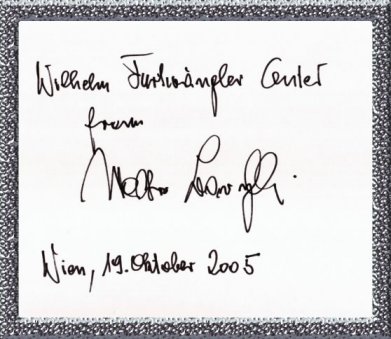 Wilhelm Furtwängler Center
from
Wien, 19. Oktober 2005